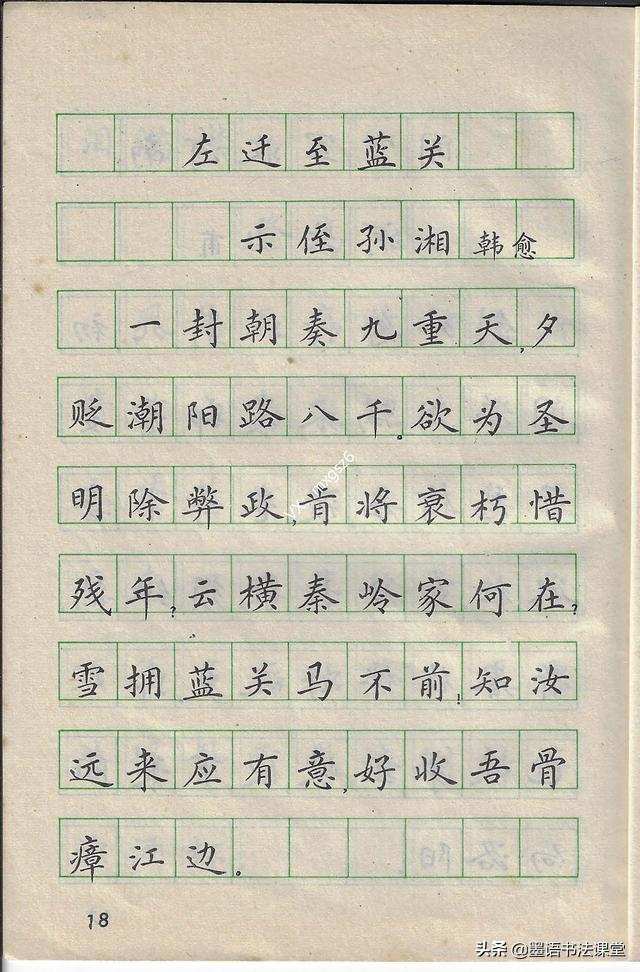 左迁至蓝关
示侄孙湘 韩愈
一封朝奏九重天,夕
贬潮阳路八千。欲为圣
明除弊政,肯将衰朽惜
残年?云横秦岭家何在?
雪拥蓝关马不前!知汝
远来应有意,好收吾骨
瘴江边。
18
头条 @墨语书法课堂